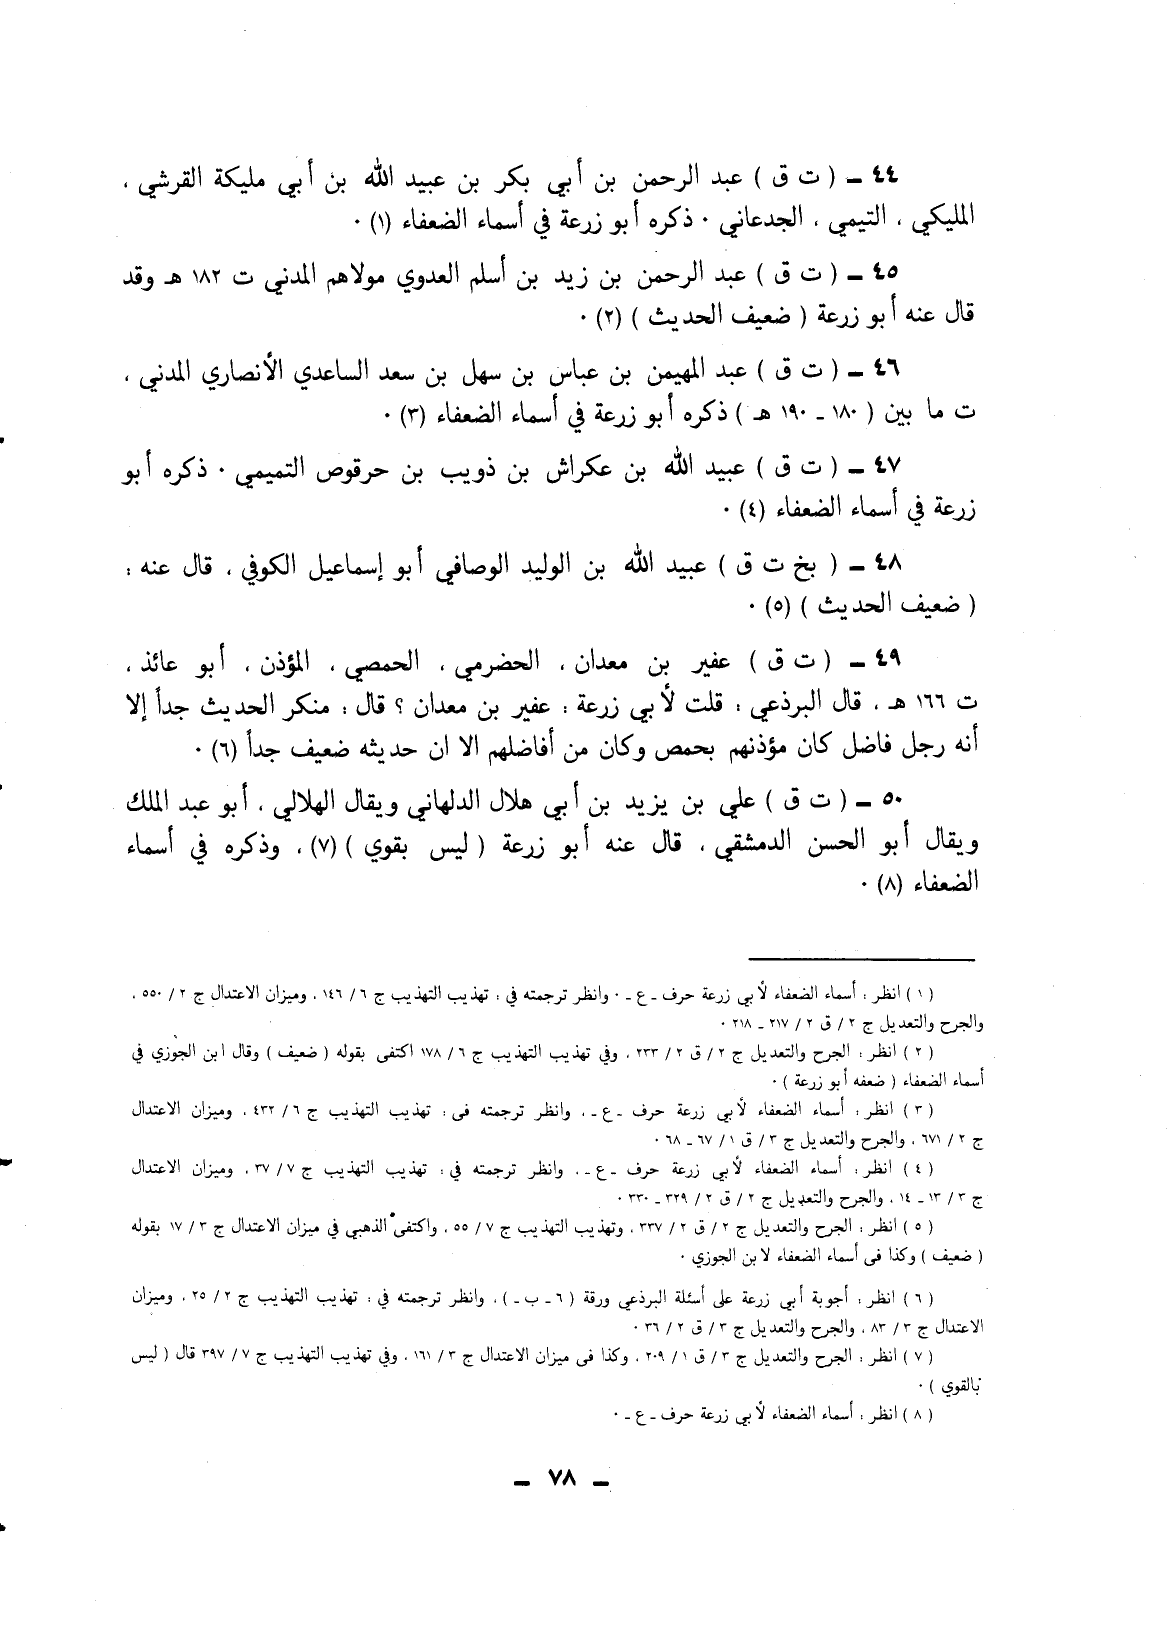 ٤٤ ــ ( ت ق ) عبد الرحمن بن أبي بكر بن عبيد الله بن أبي مليكة القرشي ،
المليكي ، التيمي ، الجدعاني ٠ ذكره أبو زرعة في أسماء الضعفاء (١) ٠
٤٥ ــ ( ت ق ) عبد الرحمن بن زيد بن أسلم العدوي مولاهم المدني ت ١٨٢ هـ وقد
قال عنه أبو زرعة ( ضعيف الحديث ) (٢) ٠
٤٦ ــ ( ت ق ) عبد المهيمن بن عباس بن سهل بن سعد الساعدي الأنصاري المدني ،
ت ما بين ( ١٨٠ ـ ١٩٠ هـ ) ذكره أبو زرعة في أسماء الضعفاء (٣) ٠
٤٧ ــ ( ت ق ) عبيد الله بن عكراش بن ذويب بن حرقوص التميمي ٠ ذكره أبو
زرعة في أسماء الضعفاء (٤) ٠
٤٨ ــ ( بخ ت ق ) عبيد الله بن الوليد الوصافي أبو إسماعيل الكوفي ، قال عنه :
( ضعيف الحديث ) (٥) ٠
٤٩ ــ ( ت ق ) عفير بن معدان ، الحضرمي ، الحمصي ، المؤذن ، أبو عائذ ،
ت ١٦٦ هـ ، قال البرذعي : قلت لأبي زرعة : عفير بن معدان ؟ قال : منكر الحديث جداً إلا
أنه رجل فاضل كان مؤذنهم بحمص وكان من أفاضلهم الا ان حديثه ضعيف جداً (٦) ٠
٥٠ ــ ( ت ق ) علي بن يزيد بن أبي هلال الدلهاني ويقال الهلالي ، أبو عبد الملك
ويقال أبو الحسن الدمشقي ، قال عنه أبو زرعة ( ليس بقوي ) (٧) ، وذكره في أسماء
الضعفاء (٨) ٠
( ١ ) انظر : أسماء الضعفاء لأبي زرعة حرف ـ ع ـ ٠ وانظر ترجمته في : تهذيب التهذيب ج ٦ / ١٤٦ ، وميزان الاعتدال ج ٢ / ٥٥٠ ،
والجرح والتعديل ج ٢ / ق ٢ / ٢١٧ ـ ٢١٨ ٠
( ٢ ) انظر : الجرح والتعديل ج ٢ / ق ٢ / ٢٣٣ ، وفي تهذيب التهذيب ج ٦ / ١٧٨ اكتفى بقوله ( ضعيف ) وقال ابن الجوزي في
أسماء الضعفاء ( ضعفه أبو زرعة ) ٠
( ٣ ) انظر : أسماء الضعفاء لأبي زرعة حرف ـ ع ـ ، وانظر ترجمته فى : تهذيب التهذيب ج ٦ / ٤٣٢ ، وميزان الاعتدال
ج ٢ / ٦٧١ ، والجرح والتعديل ج ٣ / ق ١ / ٦٧ ـ ٦٨ ٠
( ٤ ) انظر : أسماء الضعفاء لأبي زرعة حرف ـ ع ـ ، وانظر ترجمته في : تهذيب التهذيب ج ٧ / ٣٧ ، وميزان الاعتدال
ج ٣ / ١٣ ـ ١٤ ، والجرح والتعديل ج ٢ / ق ٢ / ٣٢٩ ـ ٣٣٠ ٠
( ٥ ) انظر : الجرح والتعديل ج ٢ / ق ٢ / ٣٣٧ ، وتهذيب التهذيب ج ٧ / ٥٥ ، واكتفى الذهبي في ميزان الاعتدال ج ٣ / ١٧ بقوله
( ضعيف ) وكذا فى أسماء الضعفاء لابن الجوزي ٠
( ٦ ) انظر : أجوبة أبي زرعة على أسئلة البرذعي ورقة ( ٦ ـ ب ـ ) ، وانظر ترجمته في : تهذيب التهذيب ج ٢ / ٢٥ ، وميزان
الاعتدال ج ٣ / ٨٣ ، والجرح والتعديل ج ٣ / ق ٢ / ٣٦ ٠
( ٧ ) انظر : الجرح والتعديل ج ٣ / ق ١ / ٢٠٩ ، وكذا فى ميزان الاعتدال ج ٣ / ١٦١ ، وفي تهذيب التهذيب ج ٧ / ٣٩٧ قال ( ليس
بالقوي ) ٠
( ٨ ) انظر : أسماء الضعفاء لأبي زرعة حرف ـ ع ـ ٠
ــ ٧٨ ــ